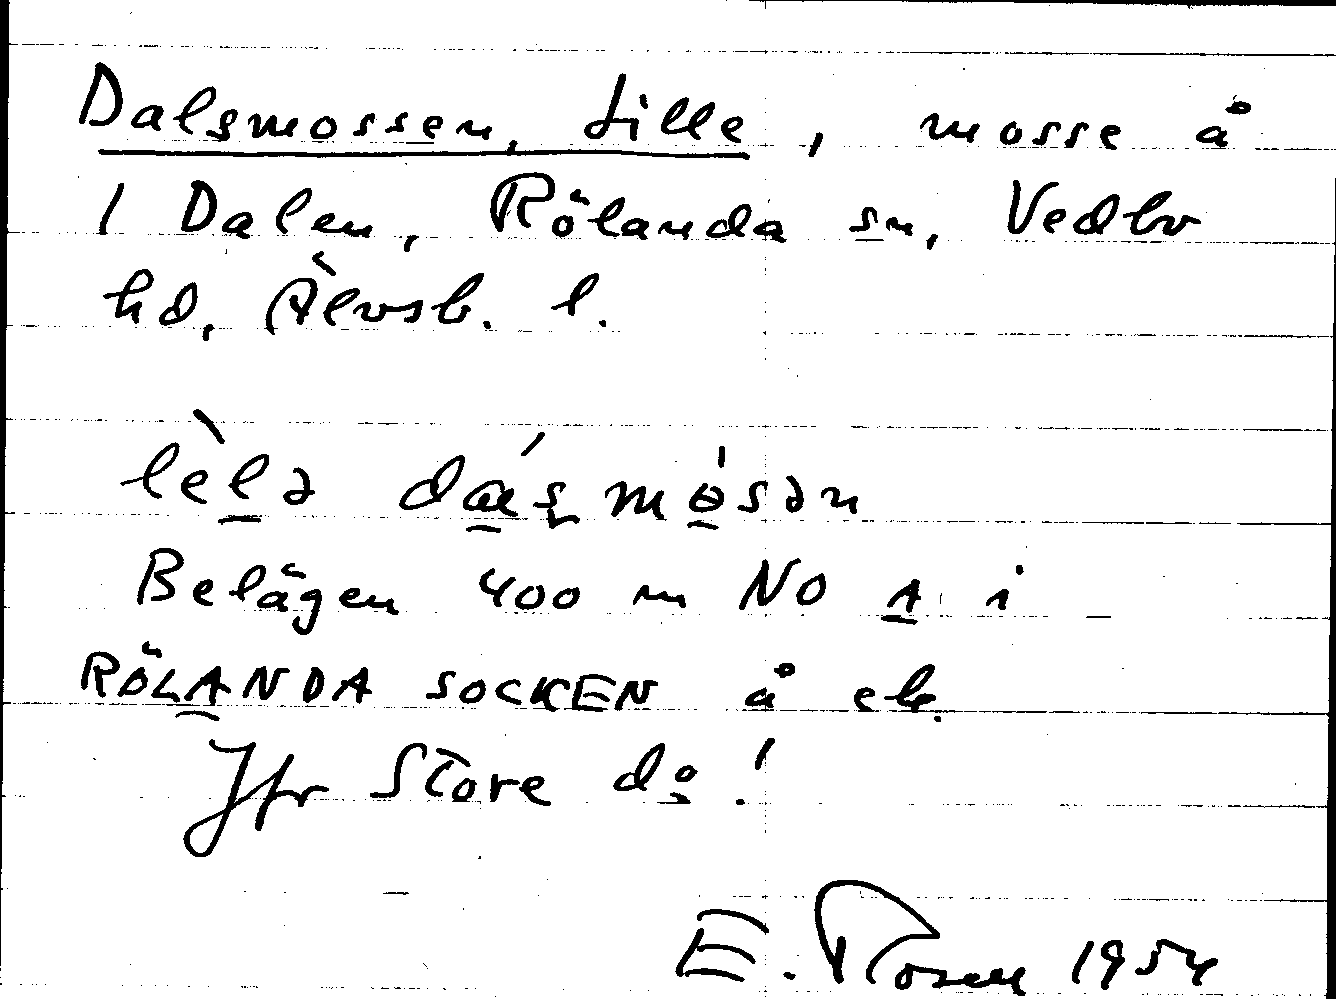 Dalsmossen, Lille, mosse å
1 Dalen, Rölanda sn, Vedbo
hd, Älvsb. l.
lèlə dáṣmósən
Belägen 400 m NO A i
RÖLANDA SOCKEN å ek.
Jfr Store do!
E. Rosen 1954